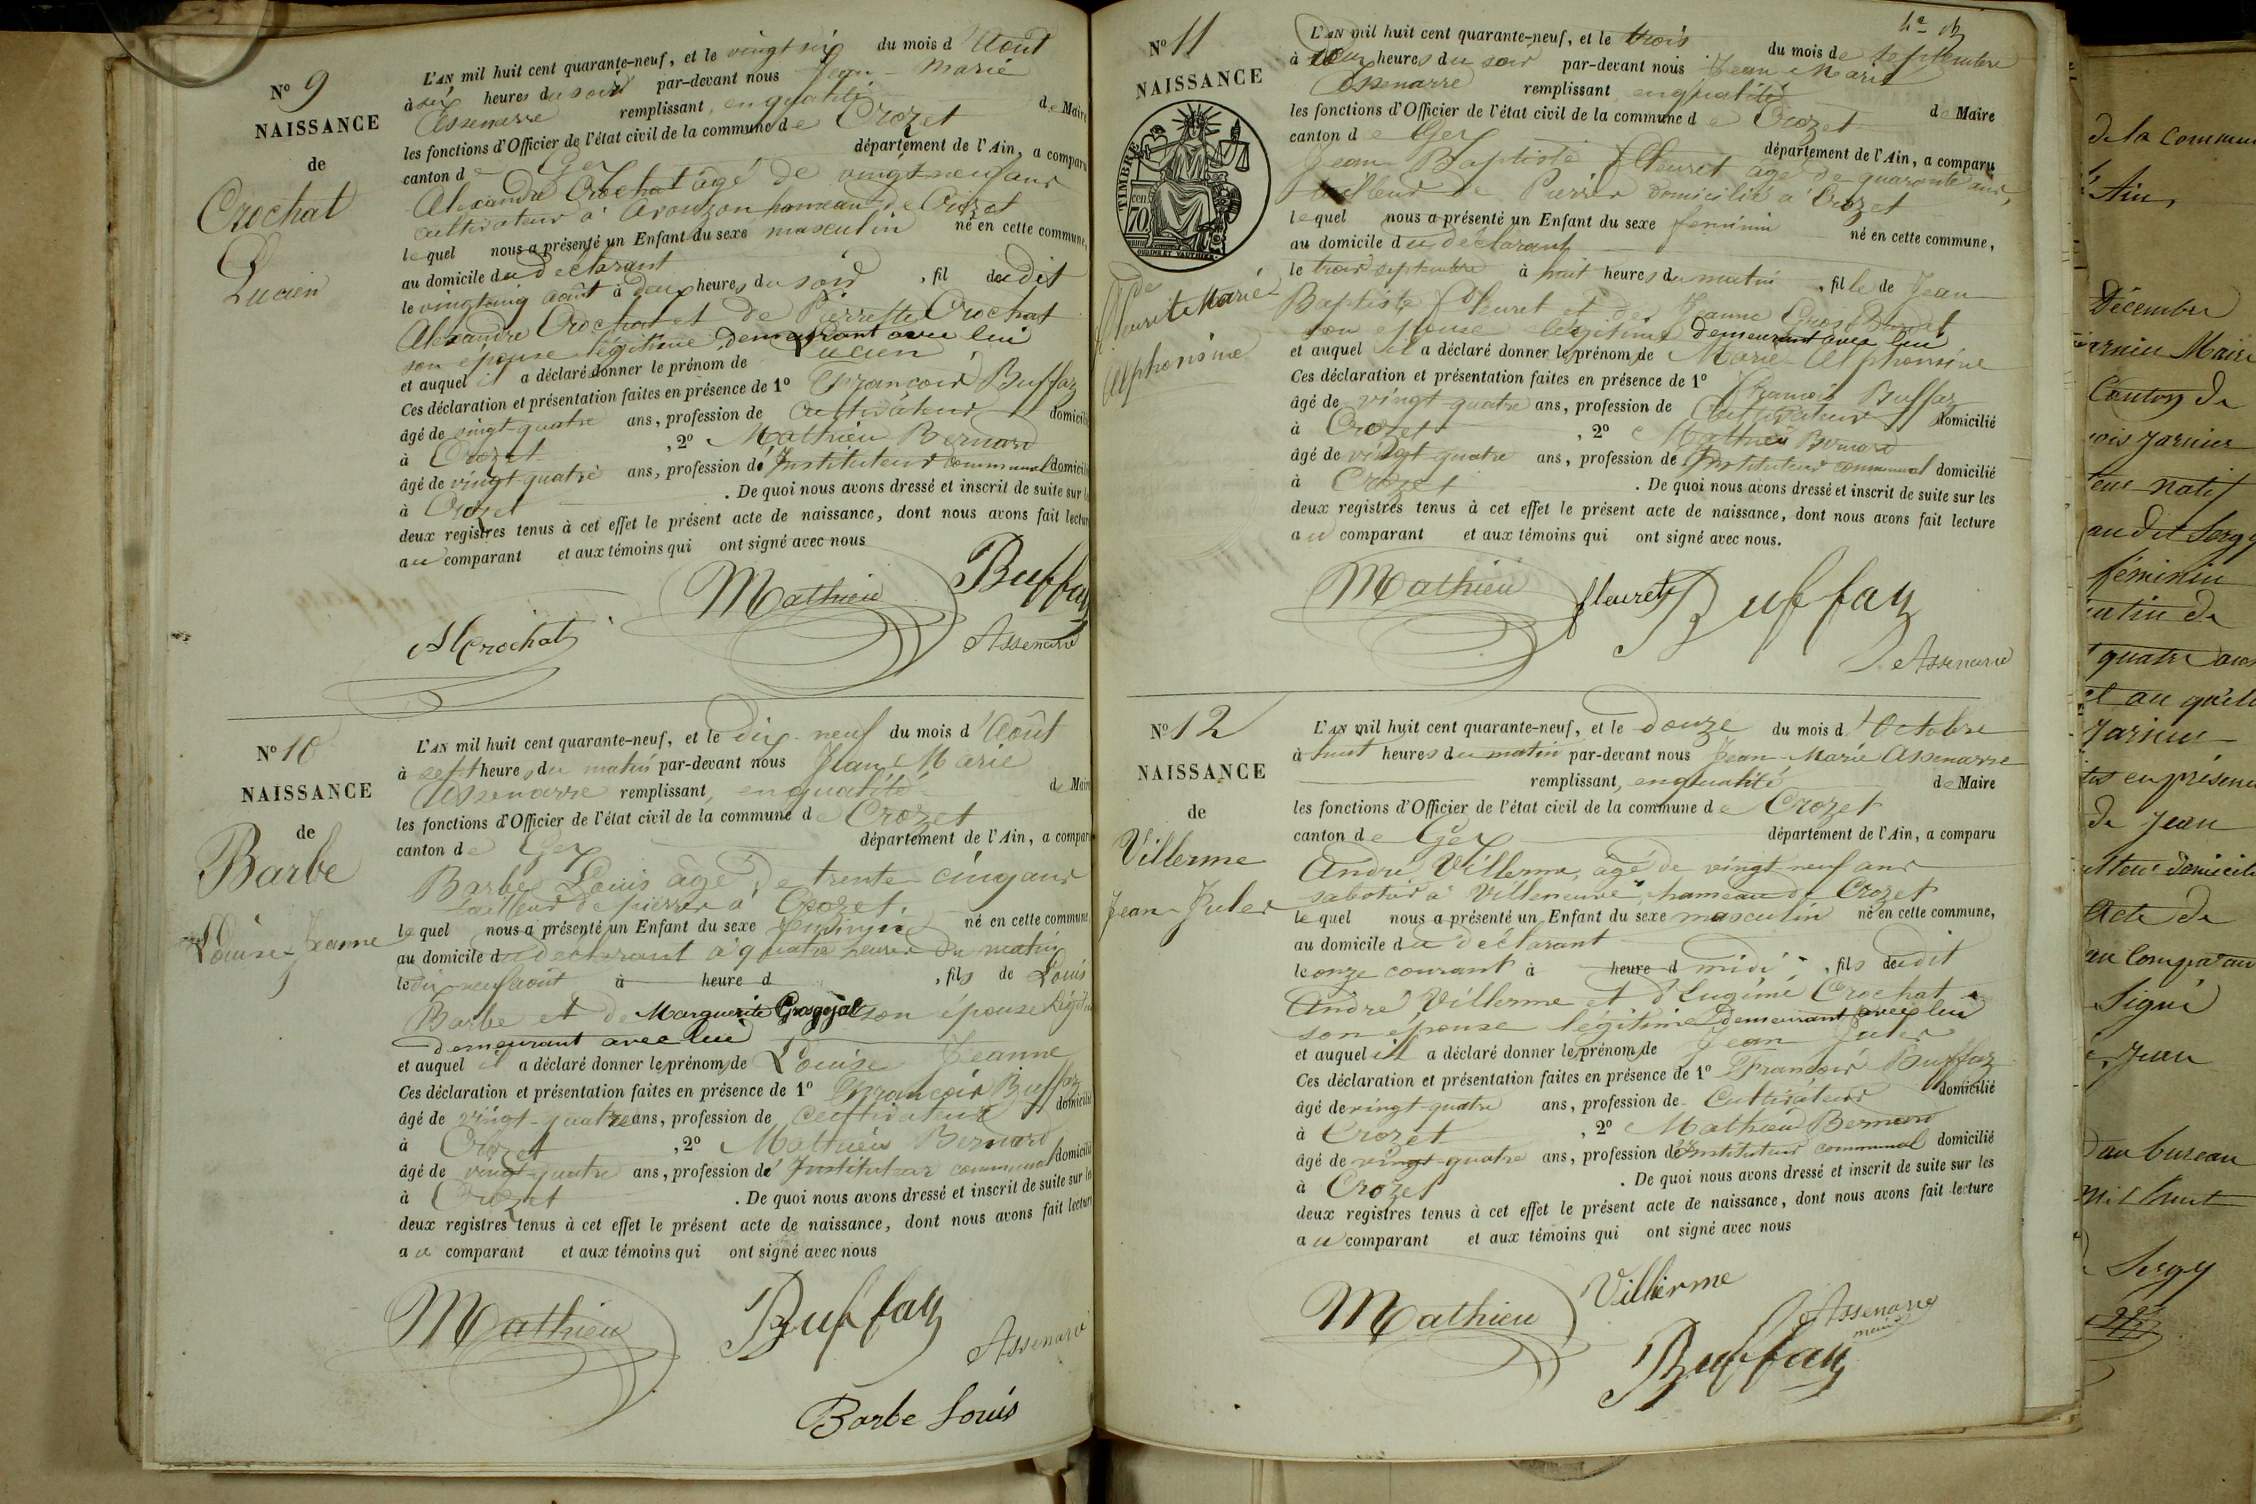 N° 9
NAISSANCE
de
Crochat
Lucien
L'AN mil huit cent quarante-neuf, et le vingt six du mois d'Août
à six heures du soir par-devant nous Jean-Marie
Assenarre remplissant, en qualité de Maire
les fonctions d'Officier de l'état civil de la commune de Crozet
canton de Gex département de l'Ain, a comparu
Alexandre Crochat âgé de vingt neuf ans
cultivateur à Avouzon hameau de Crozet
lequel nous a présenté un Enfant du sexe masculin né en cette commune,
au domicile du déclarant
le vingt cinq août à deux heures du soir, fil dudit
Alexandre Crochat et de Pierrette Crochat
son épouse légitime demeurant avec lui
et auquel il a déclaré donner le prénom de Lucien
Ces déclaration et présentation faites en présence de 1° François Buffaz
âgé de vingt-quatre ans, profession de cultivateur domicilié
à Crozet, 2° Mathieu Bernard
âgé de vingt-quatre ans, profession d'Instituteur communal domicilié
à Crozet. De quoi nous avons dressé et inscrit de suite sur les
deux registres tenus à cet effet le présent acte de naissance, dont nous avons fait lecture
au comparant et aux témoins qui ont signé avec nous
Mathieu Buffaz
A Crochat Assenarre
N° 10
NAISSANCE
de
Barbe
Louise-Jeanne
L'AN mil huit cent quarante-neuf, et le dix-neuf du mois d'Août
à sept heures du matin par-devant nous Jean Marie
Assenarre remplissant, en qualité de Maire
les fonctions d'Officier de l'état civil de la commune de Crozet
canton de Gex département de l'Ain, a comparu
Barbe Louis âgé de trente-cinq ans
tailleur de pierre à Crozet.
lequel nous a présenté un Enfant du sexe féminin né en cette commune
au domicile du déclarant à quatre heures du matin
le dix neuf août à heure d , fils de Louis
Barbe et de Marguerite Grosgojat son épouse légitime
demeurant avec lui
et auquel il a déclaré donner les prénoms de Louise Jeanne
Ces déclaration et présentation faites en présence de 1° François Buffaz
âgé de vingt-quatre ans, profession de cultivateur domicilié
à Crozet, 2° Mathieu Bernard
âgé de vingt-quatre ans, profession d'Instituteur communal domicilié
à Crozet. De quoi nous avons dressé et inscrit de suite sur les
deux registres tenus à cet effet le présent acte de naissance, dont nous avons fait lecture
au comparant et aux témoins qui ont signé avec nous
Mathieu Buffaz Assenarre
Barbe Louis
N° 11
NAISSANCE
TIMBRE
70
cent
de
Fleuret Marie
Alphonsine
L'AN mil huit cent quarante-neuf, et le trois du mois de septembre
à deux heures du soir par-devant nous Jean Marie
Assenarre remplissant en qualité de Maire
les fonctions d'Officier de l'état civil de la commune de Crozet
canton de Gex département de l'Ain, a comparu
Jean Baptiste Fleuret âgé de quarante ans,
tailleur de Pierre domicilié à Crozet
lequel nous a présenté un Enfant du sexe féminin né en cette commune,
au domicile du déclarant
le trois septembre à huit heures du matin, fille de Jean
Baptiste Fleuret et de Jeanne
son épouse légitime demeurant avec lui
et auquel il a déclaré donner les prénoms de Marie Alphonsine
Ces déclaration et présentation faites en présence de 1° François Buffaz
âgé de vingt-quatre ans, profession de Cultivateur domicilié
à Crozet, 2° Mathieu Bernard
âgé de vingt quatre ans, profession de Instituteur communal domicilié
à Crozet. De quoi nous avons dressé et inscrit de suite sur les
deux registres tenus à cet effet le présent acte de naissance, dont nous avons fait lecture
au comparant et aux témoins qui ont signé avec nous.
Mathieu fleuret Buffaz
Assenarre
N° 12
NAISSANCE
de
Villerme
Jean-Jules
L'AN mil huit cent quarante-neuf, et le douze du mois d'Octobre
à huit heures du matin par-devant nous Jean-Marie Assenarre
remplissant, en qualité de Maire
les fonctions d'Officier de l'état civil de la commune de Crozet
canton de Gex département de l'Ain, a comparu
André Villerme, âgé de vingt-neuf ans
sabotier à Villeneuve, hameau de Crozet
lequel nous a présenté un Enfant du sexe masculin né en cette commune,
au domicile du déclarant
le onze courant à heure d midi, fils dudit
André Villerme et d'Eugénie Crochat
son épouse légitime demeurant avec lui
et auquel il a déclaré donner les prénoms de Jean Jules
Ces déclaration et présentation faites en présence de 1° François Buffaz
âgé de vingt-quatre ans, profession de Cultivateur domicilié
à Crozet, 2° Mathieu Bernard
âgé de vingt-quatre ans, profession d'Instituteur communal domicilié
à Crozet. De quoi nous avons dressé et inscrit de suite sur les
deux registres tenus à cet effet le présent acte de naissance, dont nous avons fait lecture
au comparant et aux témoins qui ont signé avec nous
Mathieu Villerme Assenarre
maire
Buffaz
de la commun
Ain,
Décembre
Maire
Canton de
natif
au dit Sergy
féminin
matin de
quatre ans
et au quel
de Jean
Acte de
au comparant
Signé
Jean
au bureau
mil huit
Sergy